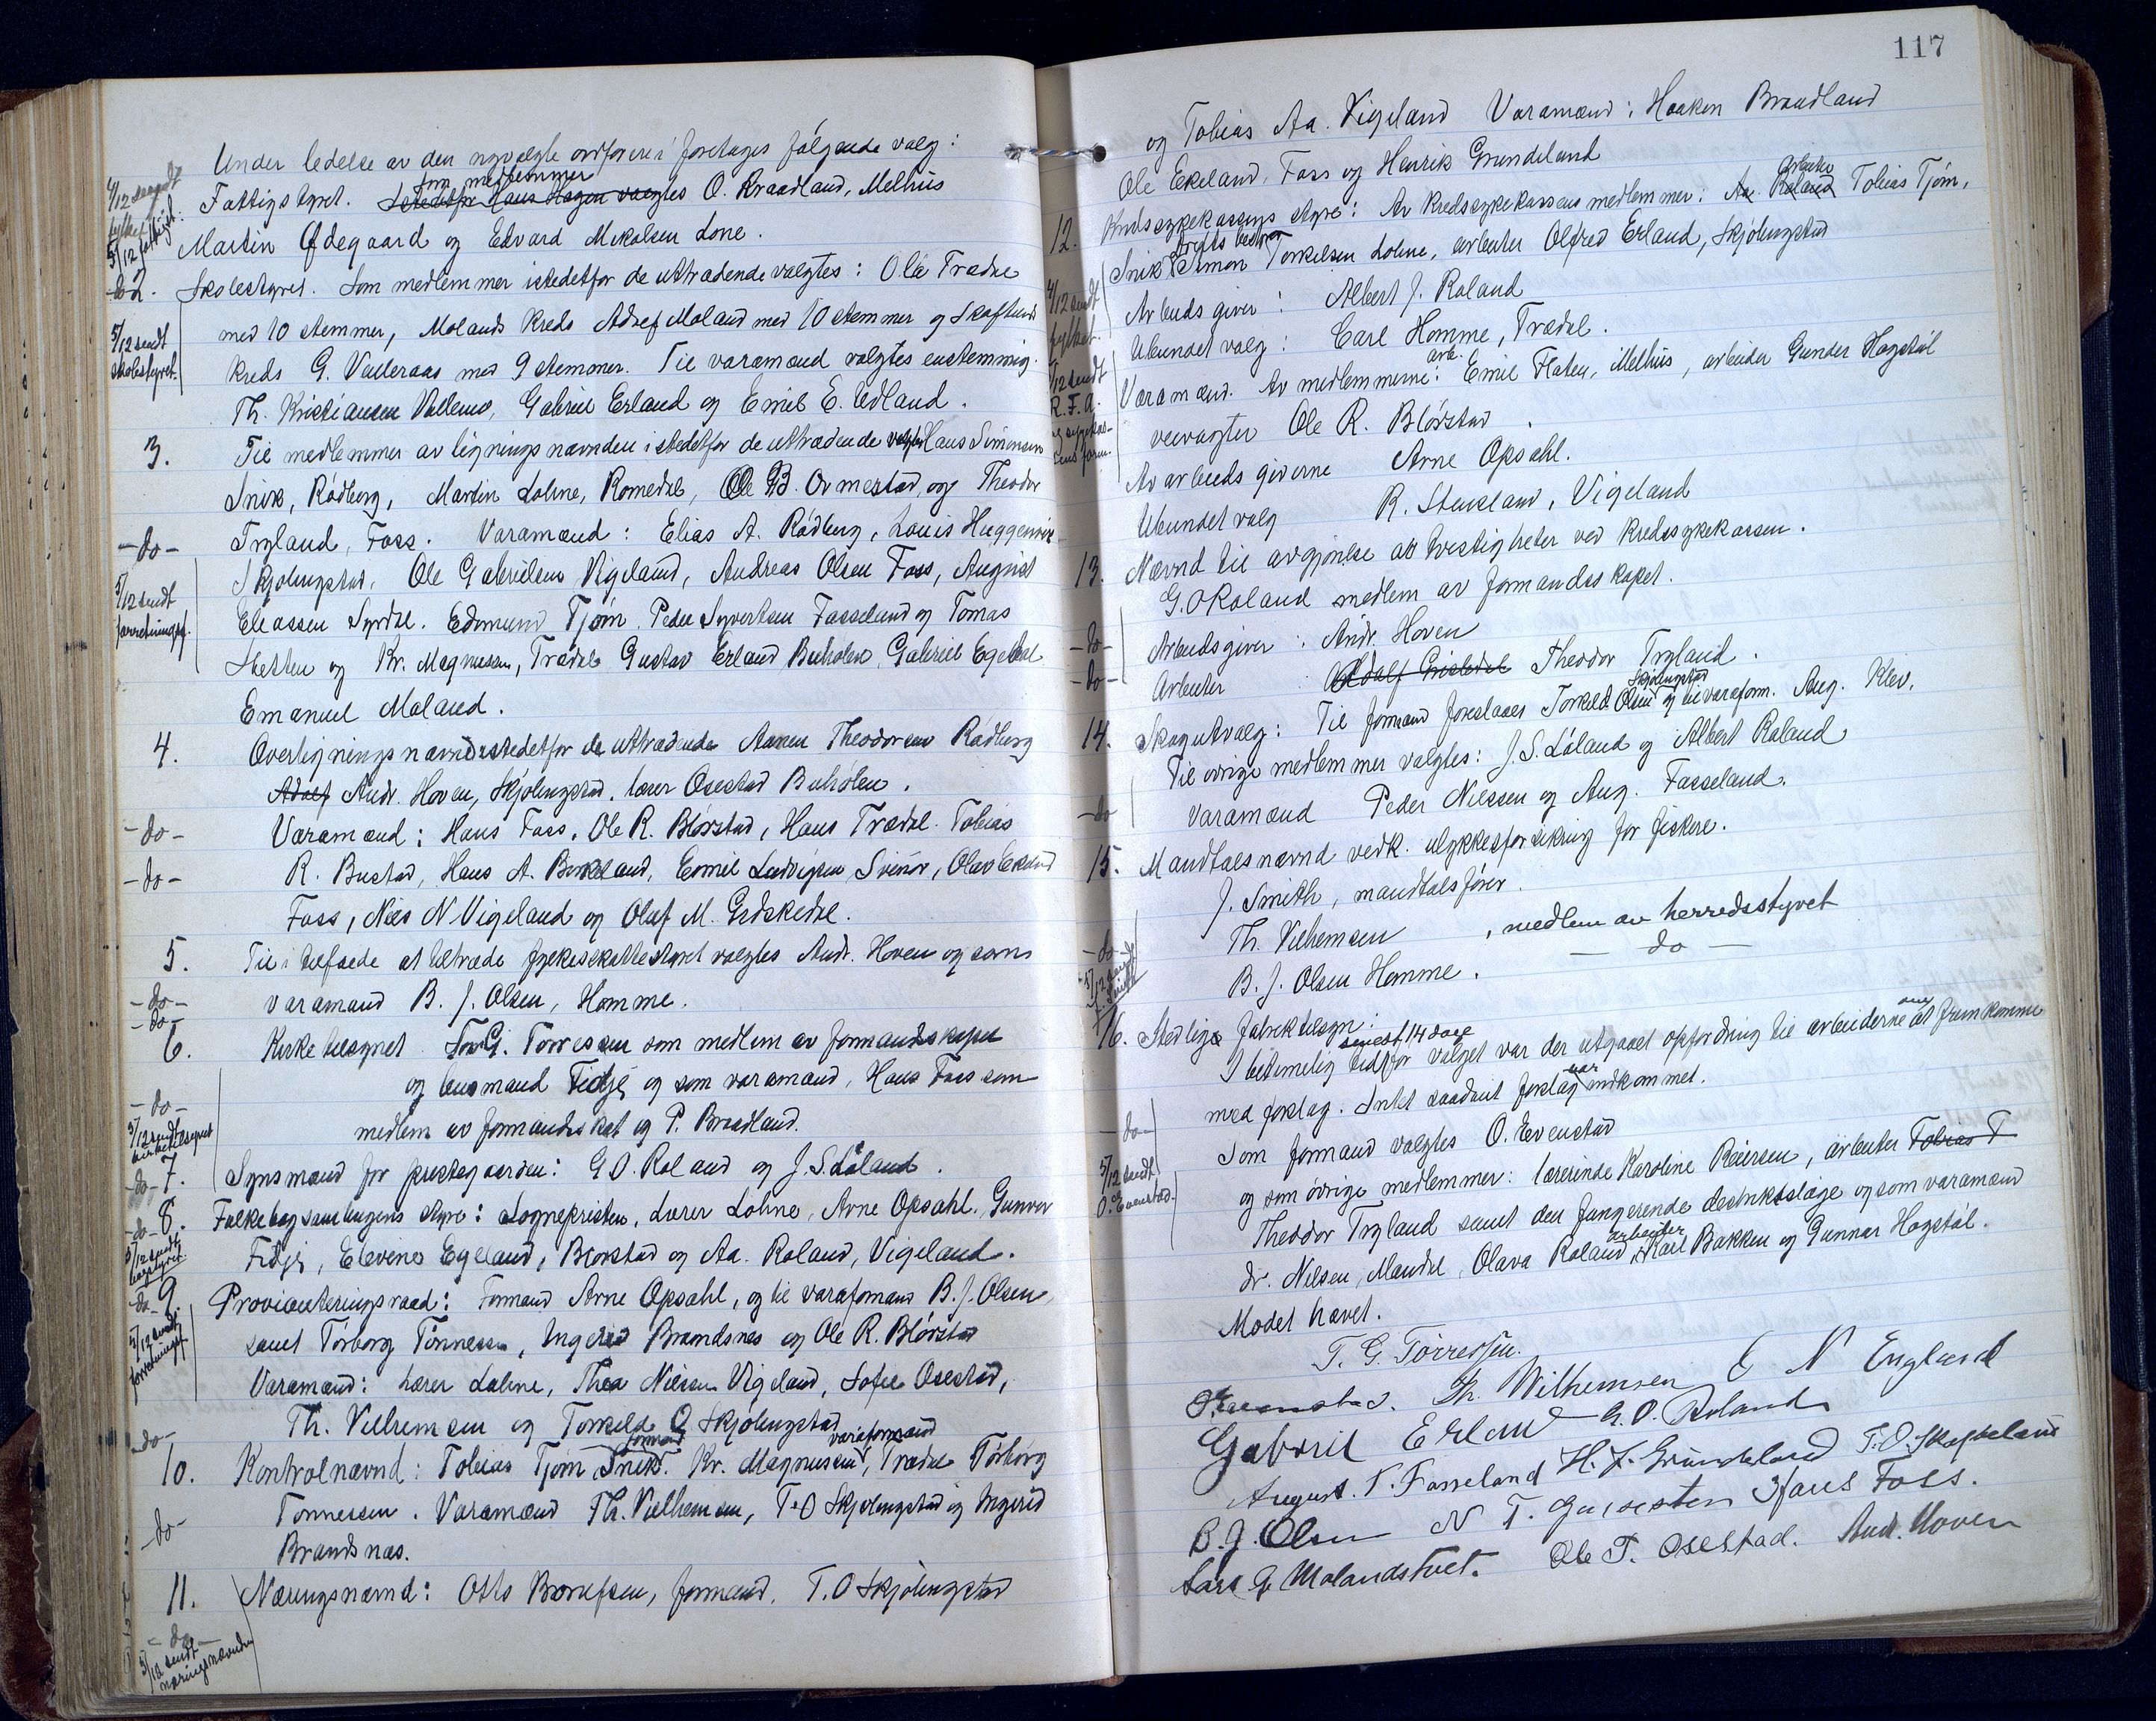 Under ledelse av den nyvalgte ordfører i foretages følgende valg:
4/12 sendt fylket
5/12 fattigst.
Fattigstyret. Istedetfor Hans Hagen valgtes som medlemmer O. Braadland, Melhus
Martin Ødegaard og Edvard Mikalsen Lone.
og
do 2. Skolestyret. Som medlemmer istedetfor de uttrædende valgtes: Ole Trædal
5/12 sendt skolestyret.
med 10 stemmer, Molands kreds Adolf Moland med 10 stemmer og Skoftlands
kreds G. Valleraas med 9 stemmer. Til varamænd valgtes enstemmig
Th. Kristiansen Valleraas, Gabriel Erland og Emil E. Udland.
3. Til medlemmer av ligningsnævnden istedetfor de uttrædende valgtes Hans Simonsen
Snik, Rødberg, Martin Lohne, Romedal, Ole B. Ormestad, og Theodor
-do- Trygland, Foss. Varamænd: Elias A. Rødberg, Louis Huggenvik
5/12 sendt forretningsf.
Skjølingstad, Ole Gabrielsen Vigeland, Andreas Olsen Foss, August
Eliassen Syrdal. Edmund Tjøm. Peder Syvertsen Fasseland og Tomas
Sletten og Kr. Magnussen, Trædal Gustav Erland Buhølen, Gabriel Egeland
Emanuel Moland.
4. Overligningsnævnd istedetfor de uttrædende Aanen Theodorsen Rødberg
Adolf Andr. Hoven, Skjølingstad, lærer Osestad Buhølen.
-do- Varamænd: Hans Foss, Ole R. Blørstad, Hans Trædal. Tobias
-do- R. Bustad, Hans A. Birkeland, Emil Ludvigsen Svinør, Olav Ekelund
Foss, Niels N Vigeland og Oluf M. Gudskedal.
5. Til i tilfælde at tiltræde fylkesskattestyret valgtes Andr. Hoven og som
-do- varamand B. J. Olsen, Homme.
-do-
6. Kirketilsynet T. G. Torresen som medlem av formandskapet
og lensmand Fidje og som varamænd, Hans Foss som
-do- medlem av formandskapet og P. Braadland.
5/12 sendt kirketilsynet
-do- 7. Synsmænd for prestegaarden: G. O. Roland og J. S. Løland.
-do- 8. Folkebogsamlingens styre: Sognepresten, Lærer Lohne, Arne Opsahl, Gunvor
5/12 sendt bogstyret
Fidje, Elevine Egeland, Blørstad og Aa. Roland, Vigeland.
-do- 9. Provianteringsraad: Formand Arne Opsahl, og til varaformand B. J. Olsen
5/12 sendt forretningsf.
samt Torborg Tønnessen, Ingerid Brandsnes og Ole R. Blørstad
Varamænd: lærer Lohne, Thea Nielsen Vigeland, Sofie Osestad,
Th. Vilhemsen og Torkeld O. Skjølingstad
-do-
10. Kontrolnævnd: Tobias Tjøm Snik formand. Kr. Magnussen varaformand, Trædal Torborg
-do- Tønnessen. Varamænd Th. Vilhemsen, T. O Skjølingstad og Ingerid
Brandsnes.
11. Næringsnævnd: Otto Brovefsen, formand, T. O Skjølingstad
-do-
5/12 sendt næringsnævnden
117
og Tobias Aa. Vigeland Varamænd: Haakon Braadland
Ole Ekeland, Foss og Henrik Grundeland
12. Kredssykekassens styre: Av kredssykekassens medlemmer: Aa. Roland arbeider Tobias Tjøm,
Snik, Simon Torkelsen Lohne, arbeider Alfred Erland, Skjølingstad
4/12 sendt fylket.
Arbeidsgiver: Albert J. Roland
Ubundet valg: Carl Homme, Trædal.
5/12 sendt R.F.A. og sykekassens form.
Varamænd. Av medlemmerne: arb. Emil Flaten, Melhus, arbeider Gunder Hagstøl
veivogter Ole R. Blørstad.
Av arbeidsgiverne Arne Opsahl.
Ubundet valg R. Stensland, Vigeland
13. Nævnd til avgjørelse av tvistigheter ved kredssykekassen.
G. O Roland medlem av formandsskapet.
-do- Arbeidsgiver: Andr. Hoven
-do- Arbeider: Adolf Grisledal Theodor Trygland.
14. Skogutvalg: Til formand foreslaaes Torkeld Olsen Skjølingstad og til varaform. Aug. Klev.
Til øvrige medlemmer valgtes: J. S. Løland og Albert Roland
-do Varamænd Peder Nielsen og Aug. Fasseland.
15. Mandtalsnævnd vedk. ulykkesforsikring for fiskere.
J. Smith, mandtalsfører.
-do- Th. Vilhemsen, medlem av herredsstyret
5/12 sendt J. Smith
B. J. Olsen Homme. — do —
16. Stedlige fabriktilsyn:
I betimelig tid senest 14 dage før valget var der utgaaet opfordring til arbeiderne om at fremkomme
-do- med forslag. Intet saadant forslag var indkommet.
Som formand valgtes O. Evenstad
5/12 sendt O. Evenstad.
og som øvrige medlemmer: lærerinde Karoline Reiersen, arbeider Tobias T
Theodor Trygland samt den fungerende destriktslæge og som varamænd
dr. Nilsen, Mandal, Olava Roland, arbeider Karl Bakken og Gunnar Hagstøl.
Mødet hævet.
T. G. Torressen.
O. Evenstad. Th. Wilhemsen E N England
Gabriel Erland G. O. Roland
August. T. Fasseland H. J. Grundeland T. O. Skjølingstad
B. J. Olsen N T. Hans Foss.
Lars G Molandstvet. Ole T. Osestad. And. Hoven